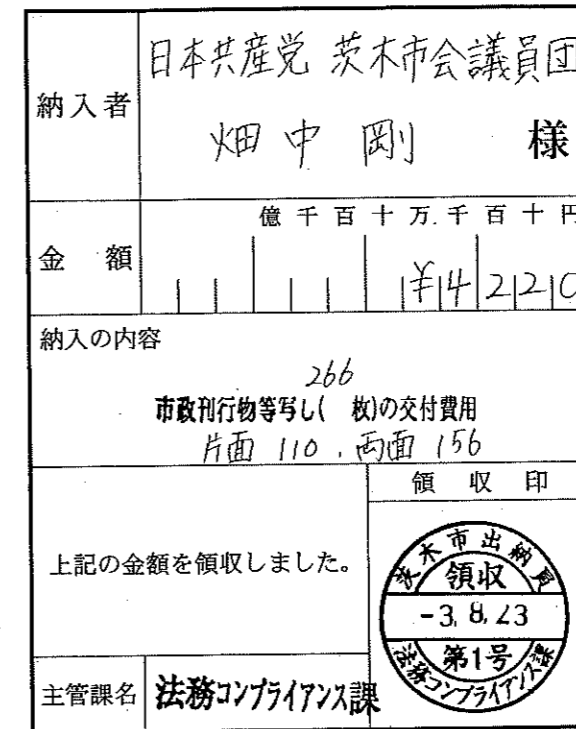 納入者
日本共産党 茨木市会議員団
畑中 剛 様
億千百十万千百十円
金額
¥4220
納入の内容
266
市政刊行物等写し( 枚)の交付費用
片面 110、両面 156
領収印
上記の金額を領収しました。
茨木市出納員
領収
-3.8.23
第1号
法務コンプライアンス課
主管課名
法務コンプライアンス課